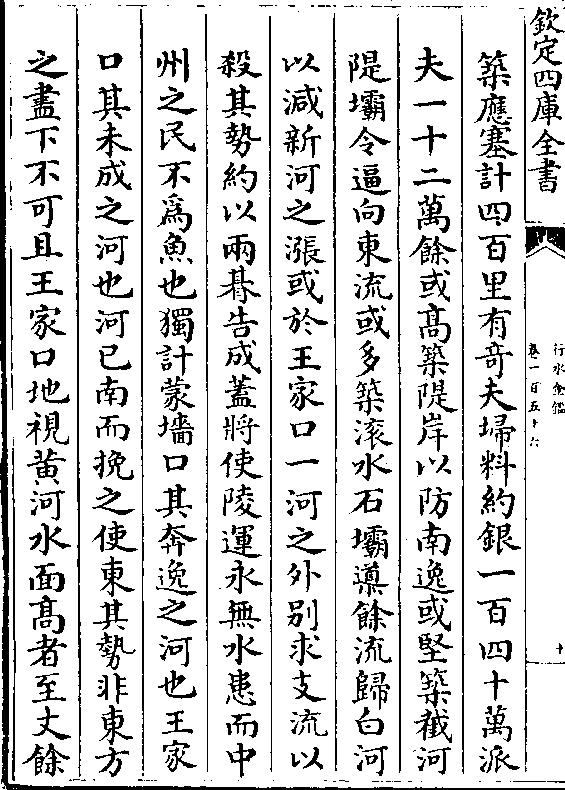 欽定四庫全書
行水金鑑
卷一百五十六
十
築應塞計四百里有奇夫埽料約銀一百四十萬派
夫一十二萬餘或髙築隄岸以防南逸或堅築截河
隄壩令逼向東流或多築滾水石壩導餘流歸白河
以減新河之漲或於王家口一河之外别求支流以
殺其勢約以兩朞告成蓋將使陵運永無水患而中
州之民不為魚也獨計蒙墻口其奔逸之河也王家
口其未成之河也河已南而挽之使東其勢非東方
之盡下不可且王家口地視黄河水面髙者至丈餘